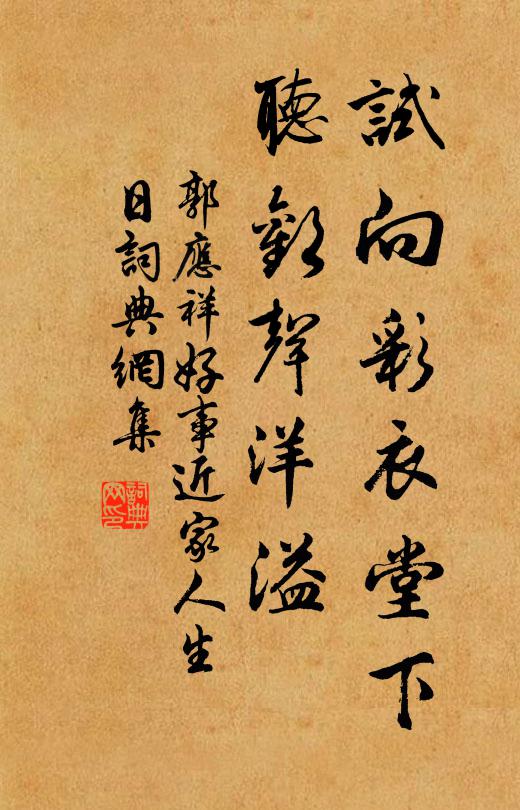 試向彩衣堂下
聽歡聲洋溢
郭應祥好事近家人生
日詞典網集
詞典
网印